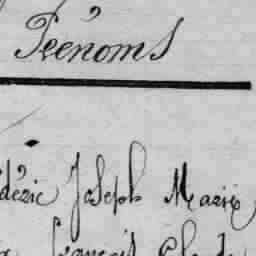 Prénoms
déric Joseph Marie
François